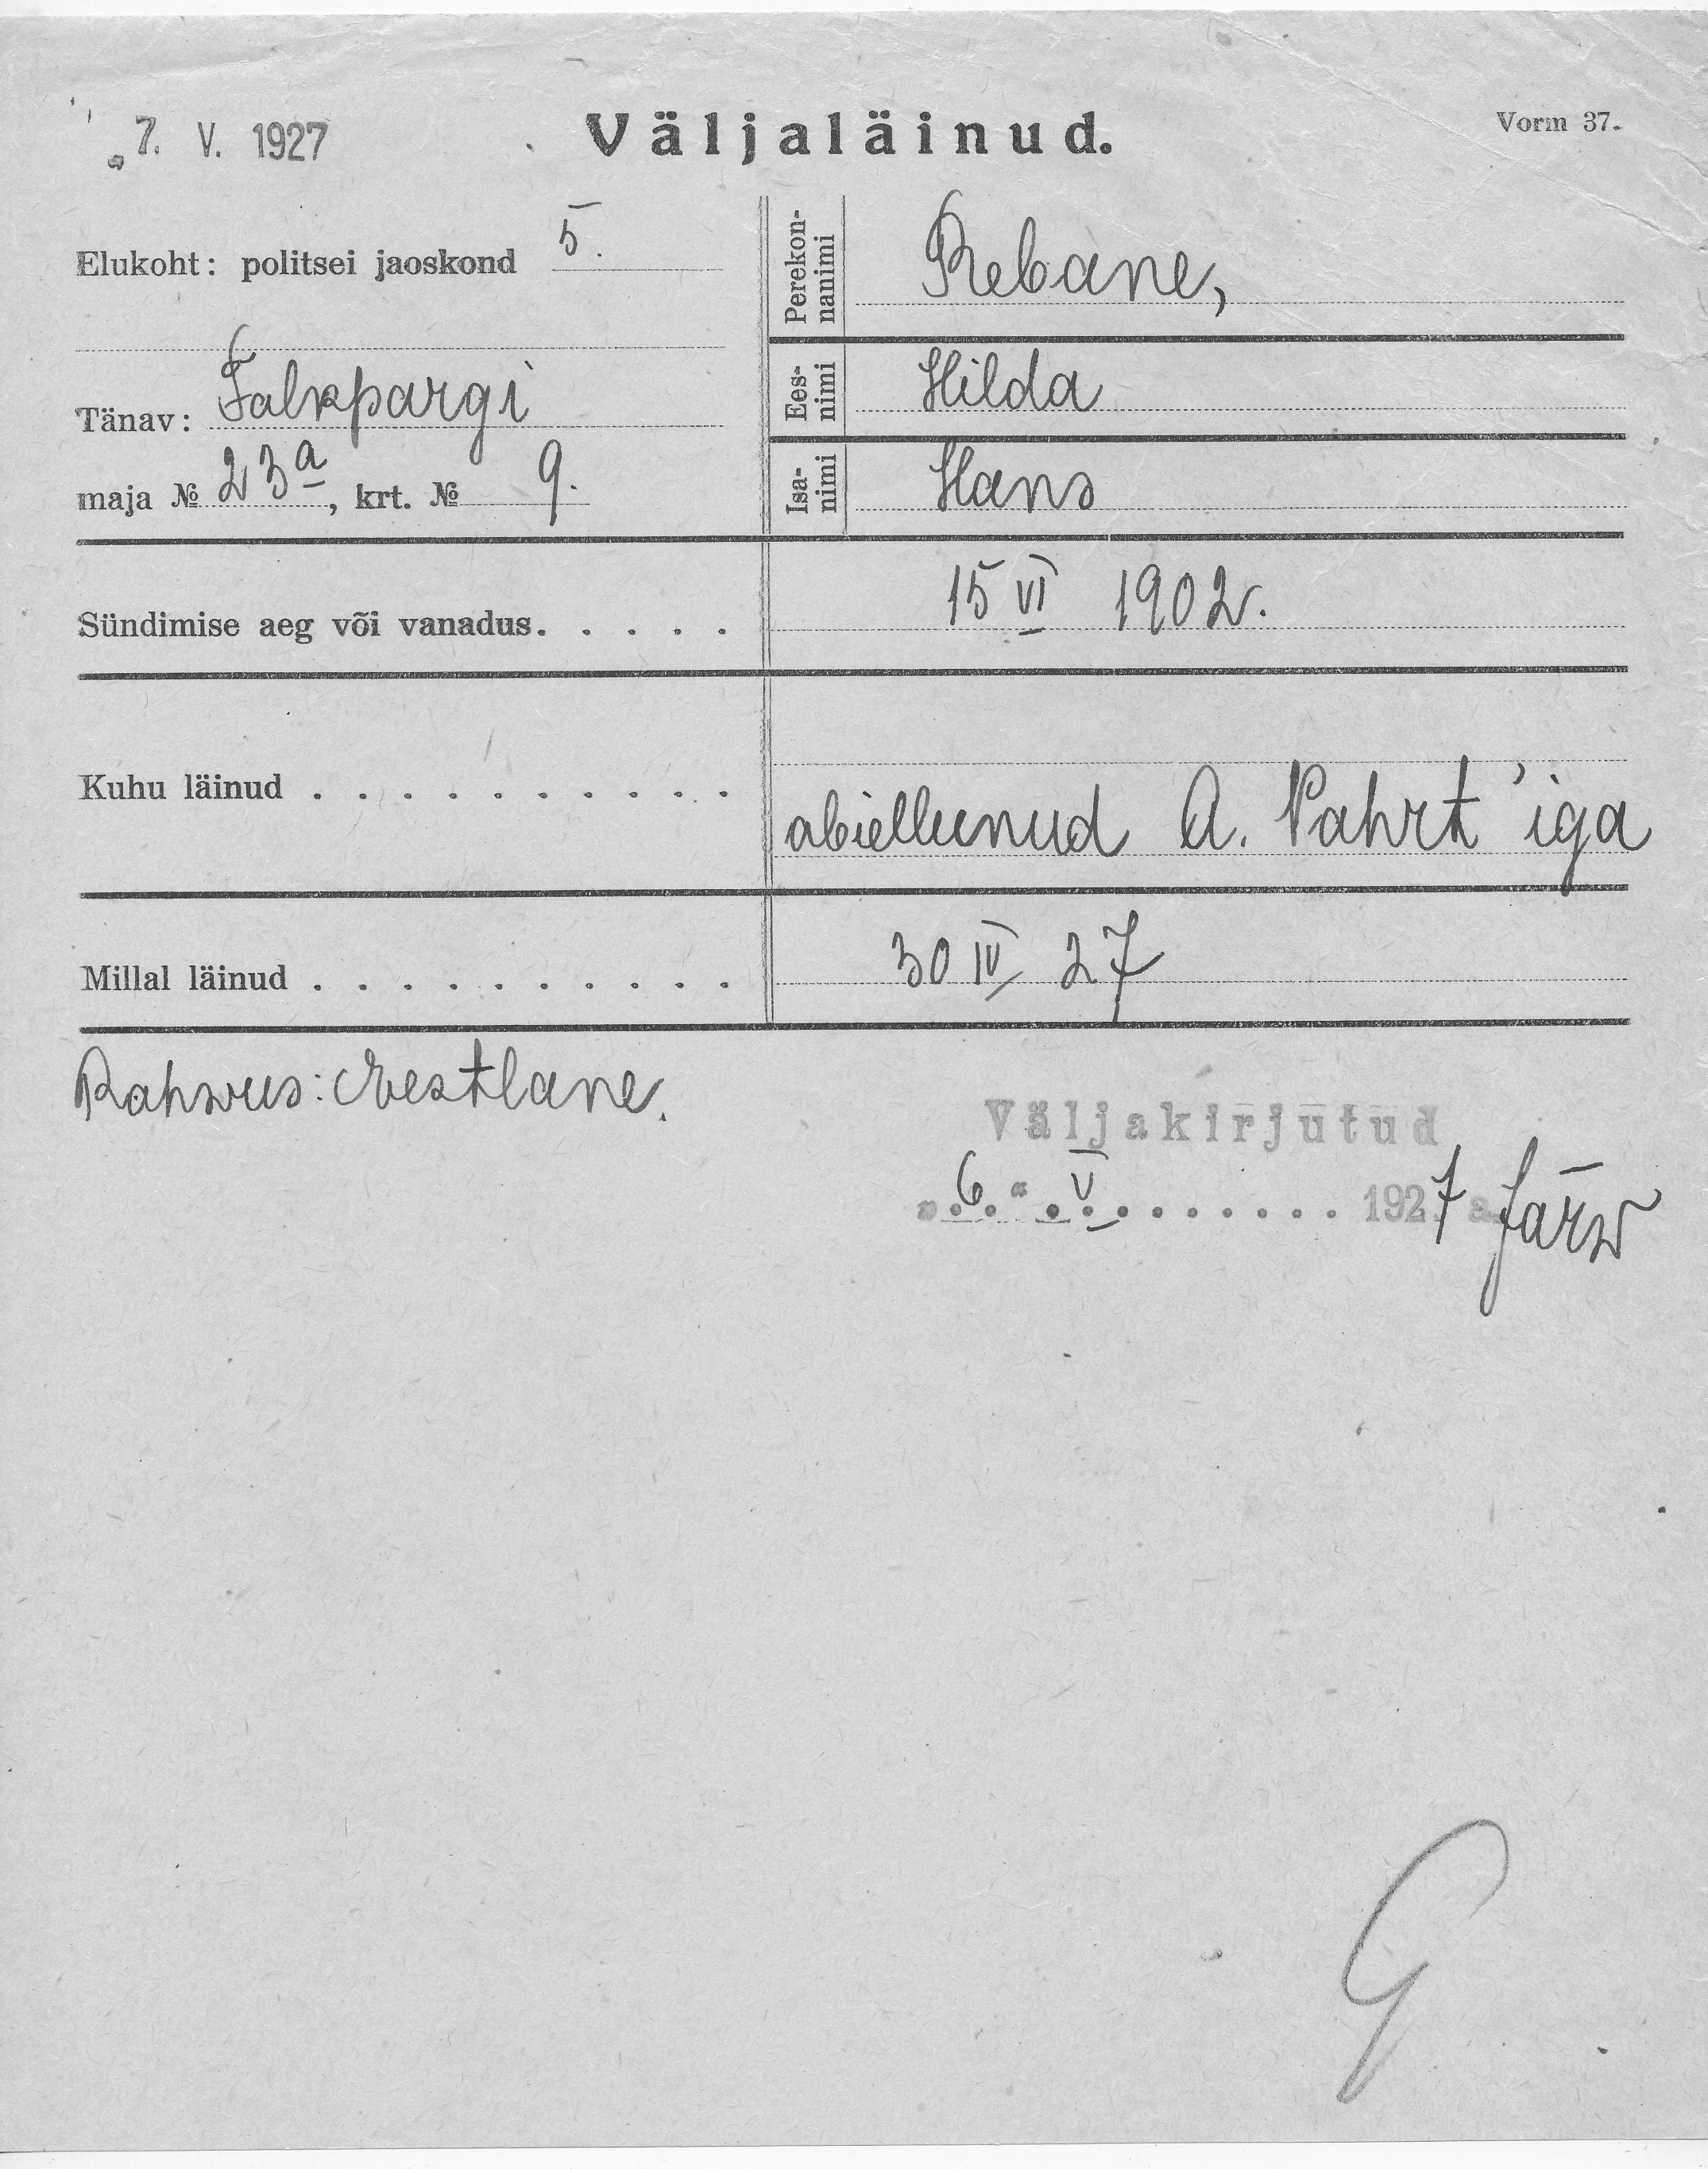 7. V. 1927
Väljaläinud.
Vorm 37.
Elukoht: politsei jaoskond 5.
Tänav: Falkpargi
maja № 23a, krt. № 9.
Perekon-
nanimi
Rebane,
Ees-
nimi
Hilda
Isa-
nimi
Hans
Sündimise aeg või vanadus. . . . . 15 VI 1902.
Kuhu läinud . . . . . . . . . . abiellunud A. Pahrt'iga
Millal läinud . . . . . . . . . . 30 IV 27
Rahwus: Eestlane.
Väljakirjutud
„6.“ V. . . . . . . . . 1927 a. Järw